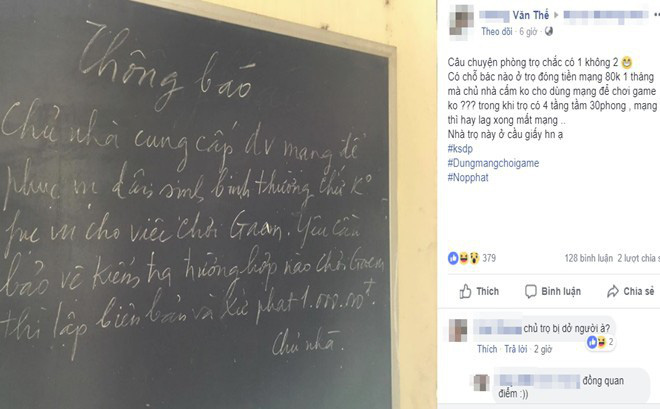 Thông báo
Chủ nhà cung cấp dv mạng để
phục vụ dân sinh bình thường chứ K°
fục vụ cho việc chơi Gaem. Yêu cầu
bảo vệ kiểm tra trường hợp nào chơi Gaem
thì lập biên bản và Xử phạt 1.000.000đ.
Chủ nhà
Văn Thế
Theo dõi · 6 giờ ·
Câu chuyện phòng trọ chắc có 1 không 2 😁
Có chỗ bác nào ở trọ đóng tiền mạng 80k 1 tháng
mà chủ nhà cấm ko cho dùng mạng để chơi game
ko ??? trong khi trọ có 4 tầng tầm 30phong , mạng
thì hay lag xong mất mạng ..
Nhà trọ này ở cầu giấy hn ạ
#ksdp
#Dungmangchoigame
#Nopphat
379
128 bình luận 2 lượt chia s
Thích Bình luận Chia sẻ
chủ trọ bị dở người à?
2
Thích · Trả lời · 2 giờ
đồng quan
điểm :))